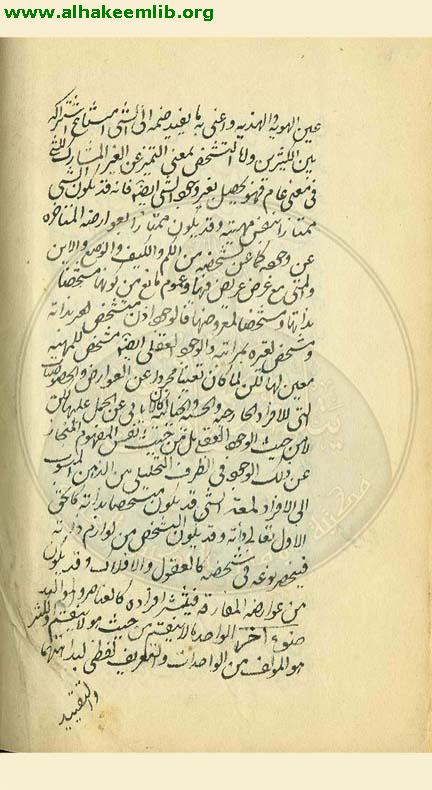 www.alhakeemlib.org
عين الهوية والهذية واعنى به ما يفيد ضمه الى الشئ امتناع اشتراكه
بين الكثيرين واما التشخص بمعنى التميز عن الغير المشارك للشئ
فى معنى عام فهو يحصل بغير وجود الشئ ايضا فانه قد يكون الشئ
ممتازا بنفس مهيته وقد يكون ممتازا بعوارضه المتاخرة
عن وجوده كما عن تشخصه من الكم والكيف والوضع والاين
والمتى مع عرض عريض فيها وعموم مانع من كونها مشخصا
بذاتها ومشخصا لمعروضها فالوجود اذن متشخص بجرد ذاته
ومشخص لغيره بمراتبه والوجود العقلى ايضا مشخص للمهية
معين لها لكن لما كان تعينا مجردا عن العوارض والخصوصيات
التى للافراد الخارجية والحسية والخيالية لا يابى عن الحمل عليها
لا من حيث الوجود العقلى بل من حيث نفس المفهوم المنحاز
عن ذلك الوجود فى الظرف التحليلى من الذهن المنسوب
الى الافراد الشئ قد يكون متشخصا بذاته كالحق
الاول تعالى ذاته وقد يكون التشخص من لوازم ذاته
فينحصر نوعه فى شخصه كالعقول والافلاك وقد يكون
من عوارضه المفارقة فينتشر افراده كالعناصر والمواليد
ضوء آخر الواحد ما لا ينقسم من حيث هو لا ينقسم والكثير
هو المؤلف من الواحدات والتعريف لفظى لبداهتهما
والتقييد